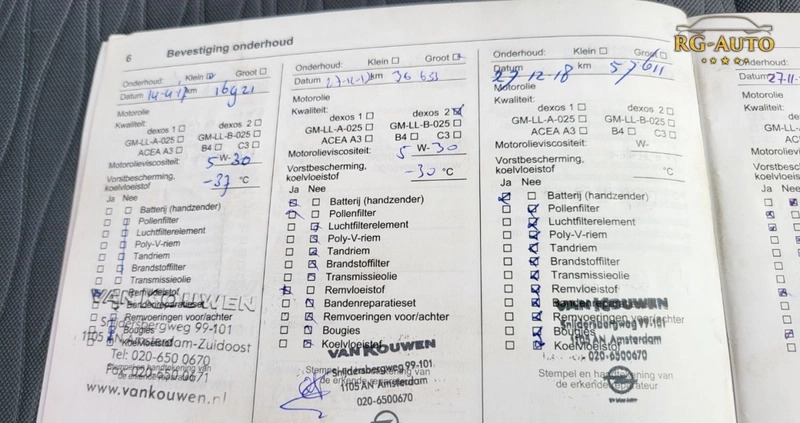 RG-AUTO
6 Bevestiging onderhoud
Onderhoud: Klein Groot
Datum 14-4-17 km 16921
Motorolie
Kwaliteit:
dexos 1 dexos 2
GM-LL-A-025 GM-LL-B-025
ACEA A3 B4 C3
Motorolieviscositeit: 5 W-30
Vorstbescherming,
koelvloeistof -37 °C
Ja Nee
Batterij (handzender)
Pollenfilter
Luchtfilterelement
Poly-V-riem
Tandriem
Brandstoffilter
Transmissieolie
Remvloeistof
Bandenreparatieset
Remvoeringen voor/achter
Bougies
Koelvloeistof
VAN KOUWEN
Snijdersbergweg 99-101
1105 AN Amsterdam-Zuidoost
Tel: 020-650 0670
Fax: 020-650 0671
www.vankouwen.nl
Stempel en handtekening van
de erkende reparateur
Onderhoud: Klein Groot
Datum 27-12-17 km 36 633
Motorolie
Kwaliteit:
dexos 1 dexos 2
GM-LL-A-025 GM-LL-B-025
ACEA A3 B4 C3
Motorolieviscositeit: 5 W-30
Vorstbescherming,
koelvloeistof -30 °C
Ja Nee
Batterij (handzender)
Pollenfilter
Luchtfilterelement
Poly-V-riem
Tandriem
Brandstoffilter
Transmissieolie
Remvloeistof
Bandenreparatieset
Remvoeringen voor/achter
Bougies
Koelvloeistof
VAN KOUWEN
Snijdersbergweg 99-101
1105 AN Amsterdam
020-6500670
Stempel en handtekening van
de erkende reparateur
Onderhoud: Klein Groot
Datum 27-12-18 km 57611
Motorolie
Kwaliteit:
dexos 1 dexos 2
GM-LL-A-025 GM-LL-B-025
ACEA A3 B4 C3
Motorolieviscositeit: W-
Vorstbescherming,
koelvloeistof °C
Ja Nee
Batterij (handzender)
Pollenfilter
Luchtfilterelement
Poly-V-riem
Tandriem
Brandstoffilter
Transmissieolie
Remvloeistof
Bandenreparatieset
Remvoeringen voor/achter
Bougies
Koelvloeistof
VAN KOUWEN
Snijdersbergweg 99-101
1105 AN Amsterdam
020-6500670
Stempel en handtekening van
de erkende reparateur
Onderhoud:
Datum 27-11-
Motorolie
Kwaliteit:
dexos
GM-LL-A-02
ACEA A
Motorolievis
Vorstbesch
koelvloeisto
Ja Nee